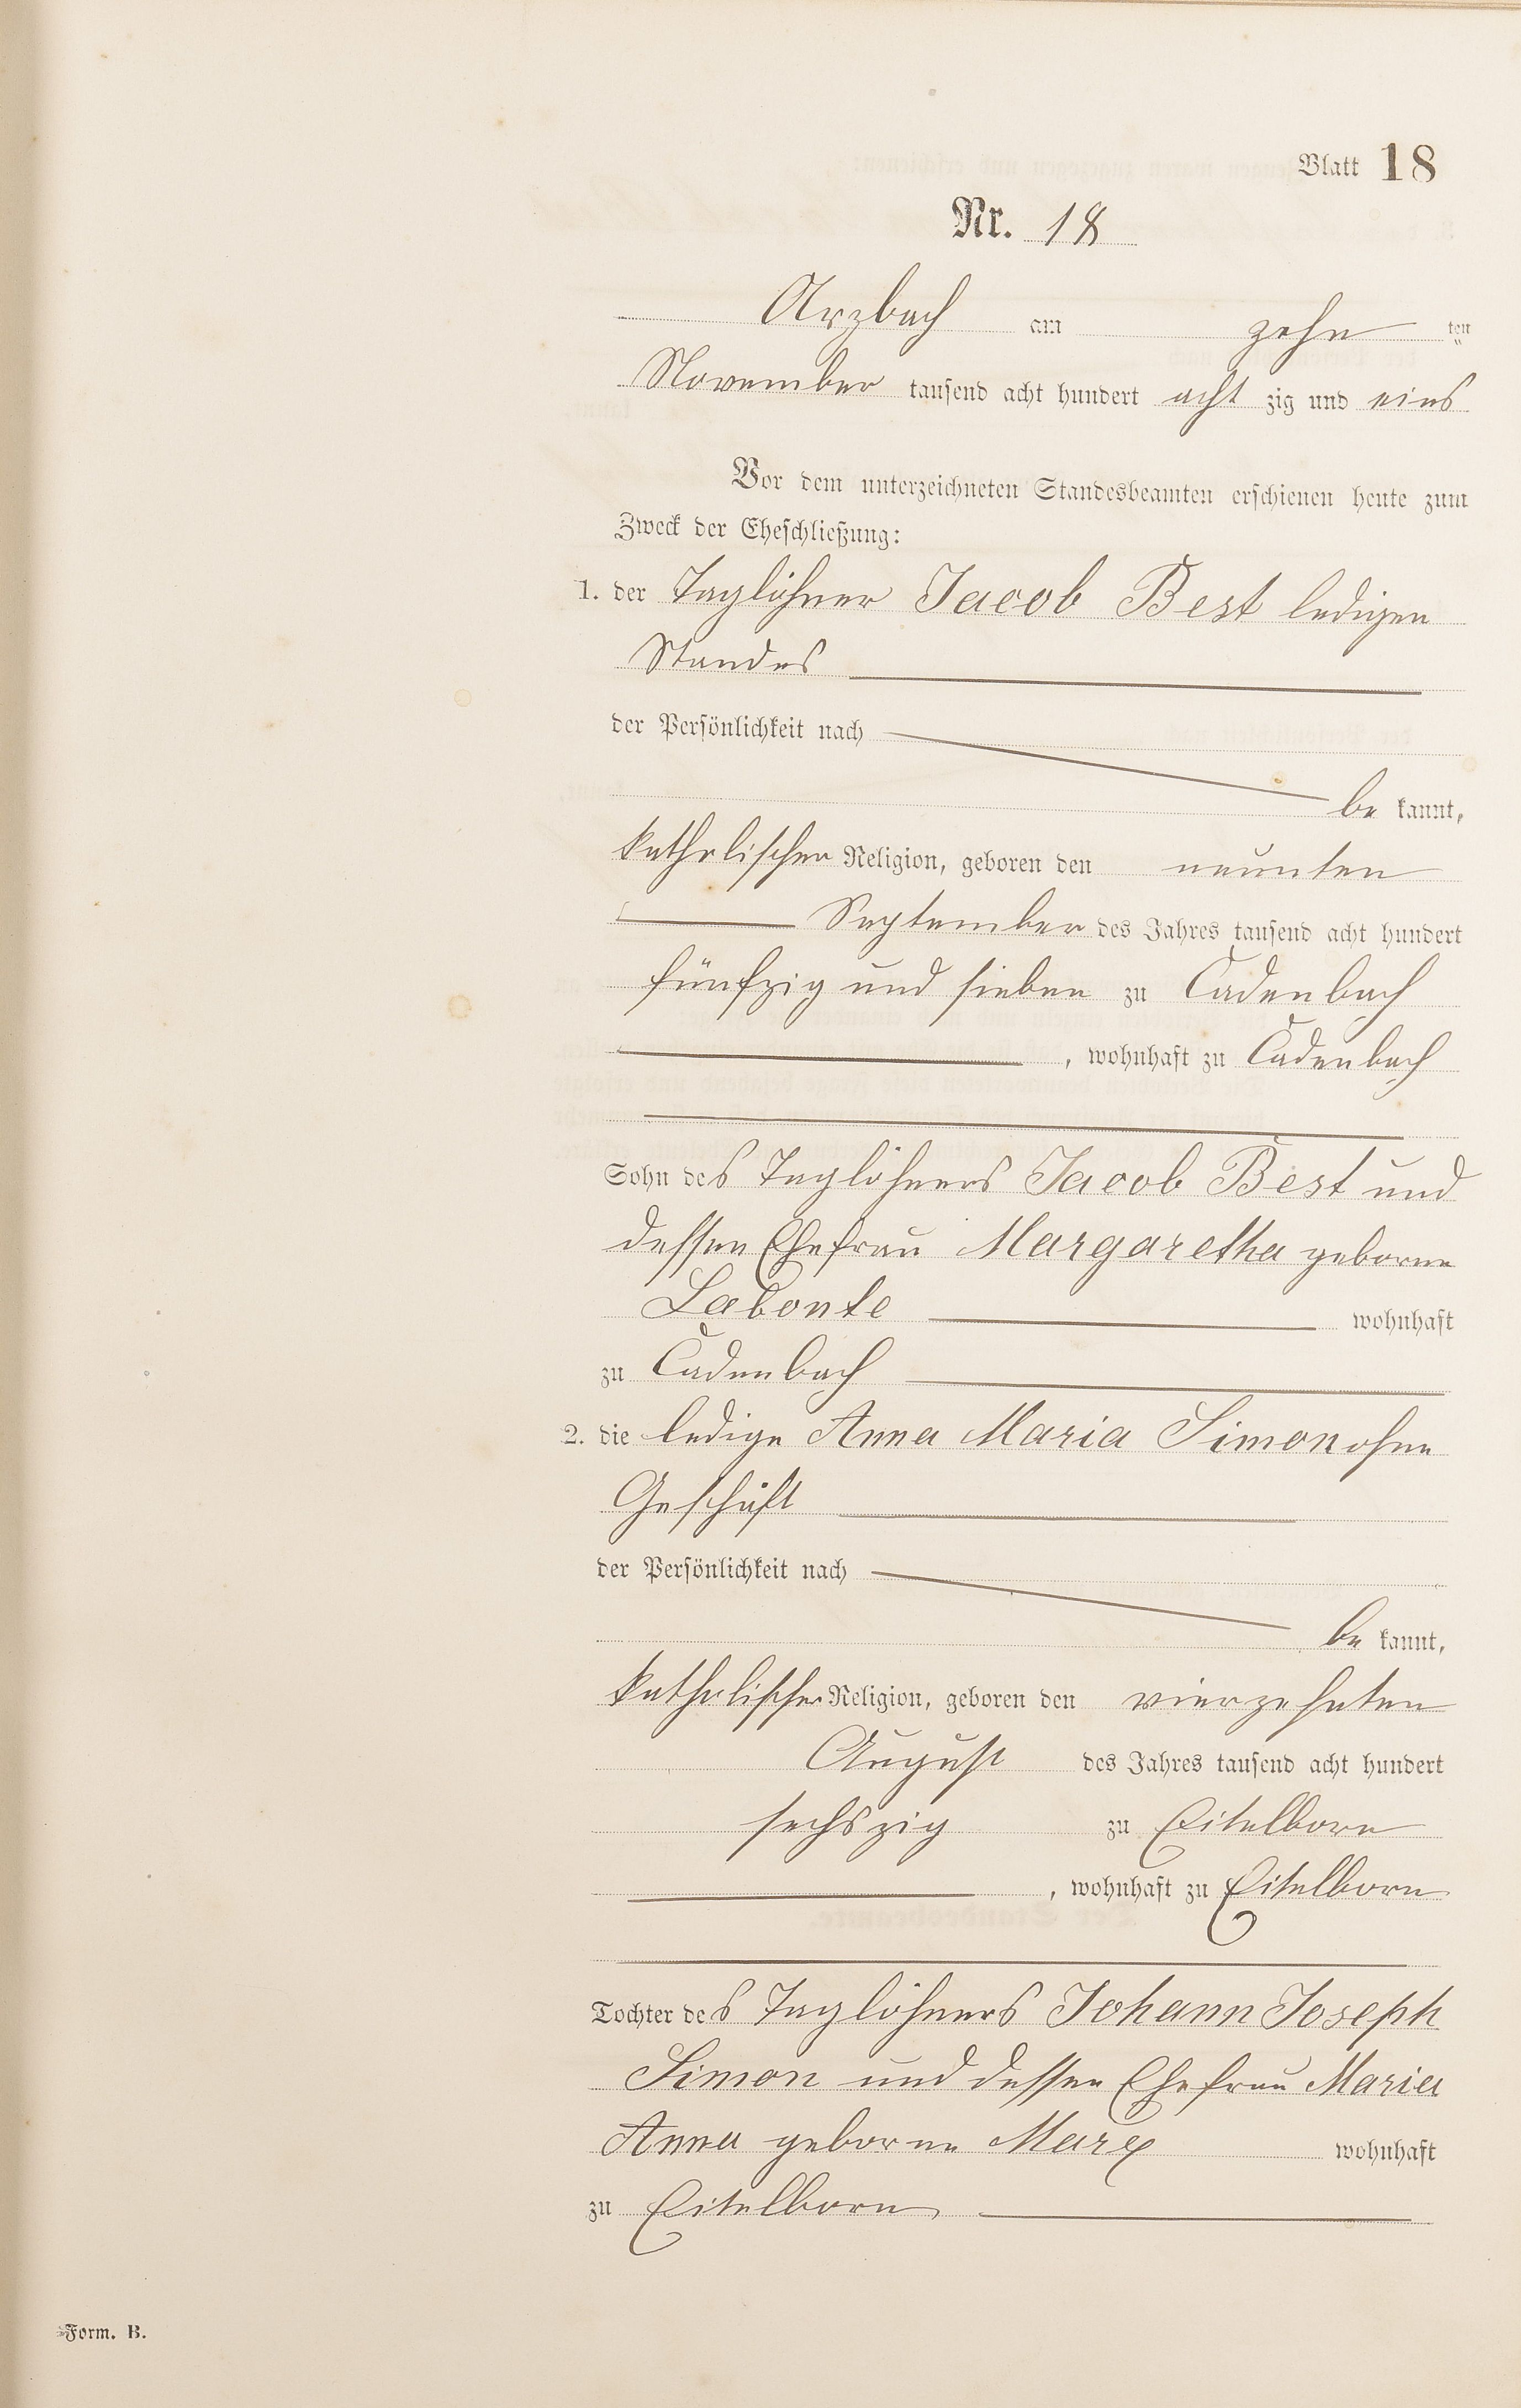 Blatt 18
Nr. 18
Arzbach am zehn ten
November tausend acht hundert acht zig und eins
Vor dem unterzeichneten Standesbeamten erschienen heute zum
Zweck der Eheschließung:
1. der Taglöhner Jacob Best ledigen
Standes
der Persönlichkeit nach
be kannt,
katholischer Religion, geboren den neunten
September des Jahres tausend acht hundert
fünfzig und sieben zu Cadenbach
, wohnhaft zu Cadenbach
Sohn des Taglöhners Jacob Best und
dessen Ehefrau Margaretha geborne
Labonte wohnhaft
zu Cadenbach
2. die ledige Anna Maria Simon ohne
Geschäft
der Persönlichkeit nach
be kannt,
katholischer Religion, geboren den vierzehnten
August des Jahres tausend acht hundert
sechszig zu Eitelborn
, wohnhaft zu Eitelborn
Tochter des Taglöhners Johann Joseph
Simon und dessen Ehefrau Maria
Anna geborne Marx wohnhaft
zu Eitelborn
Form. B.